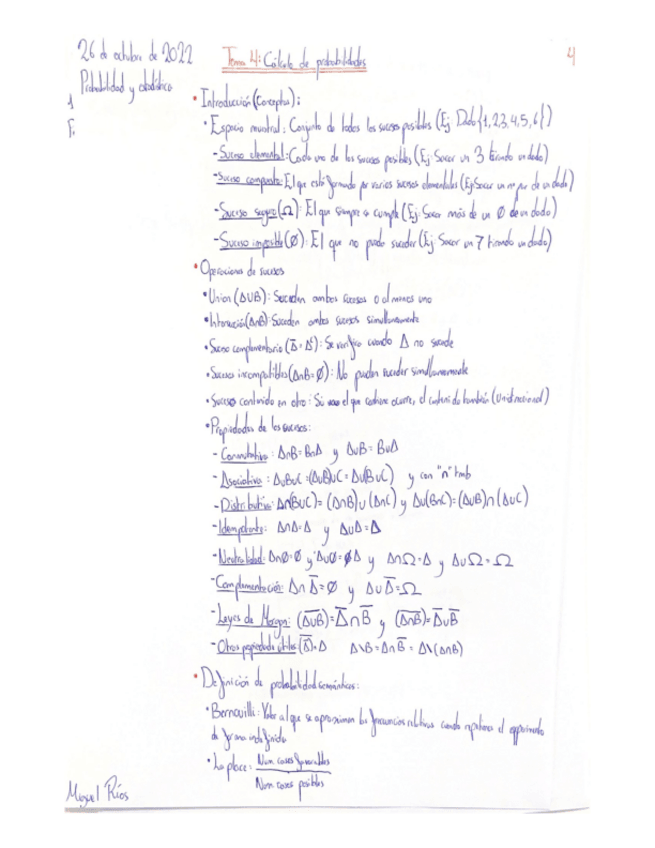 26 de octubre de 2022
Tema 4: Cálculo de probabilidades
4
Probabilidad y estadística
1
F.
• Introducción (Conceptos):
• Espacio muestral: Conjunto de todos los sucesos posibles (Ej: Dado {1,2,3,4,5,6})
- Suceso elemental: Cada uno de los sucesos posibles (Ej: Sacar un 3 tirando un dado)
- Suceso compuesto: El que está formado por varios sucesos elementales (Ej: Sacar un nº par de un dado)
- Suceso seguro (Ω): El que siempre se cumple (Ej: Sacar más de un 0 de un dado)
- Suceso imposible (Ø): El que no puede suceder (Ej: Sacar un 7 tirando un dado)
• Operaciones de sucesos
• Unión (A∪B): Suceden ambos sucesos o al menos uno
• Intersección (A∩B): Suceden ambos sucesos simultáneamente
• Suceso complementario (A̅ = Aᶜ): Se verifica cuando A no sucede
• Sucesos incompatibles (A∩B=Ø): No pueden suceder simultáneamente
• Suceso contenido en otro: Si el que contiene ocurre, el contenido también (Unidireccional)
• Propiedades de los sucesos:
- Conmutativa: A∩B=B∩A y A∪B=B∪A
- Asociativa: A∪B∪C=(A∪B)∪C=A∪(B∪C) y con "∩" tamb
- Distributiva: A∩(B∪C)=(A∩B)∪(A∩C) y A∪(B∩C)=(A∪B)∩(A∪C)
- Idempotente: A∩A=A y A∪A=A
- Neutralidad: A∩Ø=Ø y A∪Ø=A y A∩Ω=A y A∪Ω=Ω
- Complementación: A∩A̅=Ø y A∪A̅=Ω
- Leyes de Morgan: (A̅∪̅B̅)=A̅∩B̅ y (A̅∩̅B̅)=A̅∪B̅
- Otras propiedades útiles: (A̅)=A A\B=A∩B̅=A\(A∩B)
• Definición de probabilidad
• Bernouilli: Valor al que se aproximan las frecuencias relativas cuando repetimos el experimento
de forma indefinida
• Laplace: Num casos favorables
Num casos posibles
Miguel Ríos